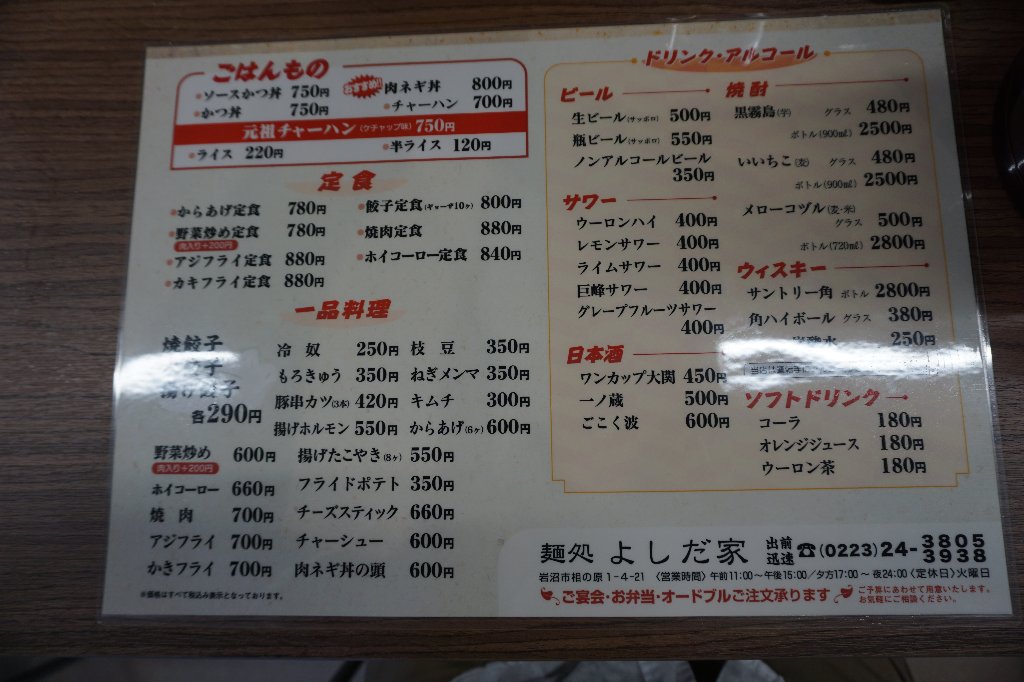 ごはんもの
ソースかつ丼 750円
かつ丼 750円
おすすめ!! 肉ネギ丼 800円
チャーハン 700円
元祖チャーハン(ケチャップ味) 750円
ライス 220円
半ライス 120円
定食
からあげ定食 780円
野菜炒め定食 780円
肉入り+200円
アジフライ定食 880円
カキフライ定食 880円
餃子定食(ギョーザ10ヶ) 800円
焼肉定食 880円
ホイコーロー定食 840円
一品料理
焼餃子
餃子
揚げ餃子
各290円
冷奴 250円
枝豆 350円
もろきゅう 350円
ねぎメンマ 350円
豚串カツ(3本) 420円
キムチ 300円
揚げホルモン 550円
からあげ(6ヶ) 600円
野菜炒め 600円
肉入り+200円
ホイコーロー 660円
焼肉 700円
アジフライ 700円
かきフライ 700円
揚げたこやき(8ヶ) 550円
フライドポテト 350円
チーズスティック 660円
チャーシュー 600円
肉ネギ丼の頭 600円
※価格はすべて税込み表示となっております。
ドリンク・アルコール
ビール
生ビール(サッポロ) 500円
瓶ビール(サッポロ) 550円
ノンアルコールビール
350円
サワー
ウーロンハイ 400円
レモンサワー 400円
ライムサワー 400円
巨峰サワー 400円
グレープフルーツサワー
400円
日本酒
ワンカップ大関 450円
一ノ蔵 500円
ごこく波 600円
焼酎
黒霧島(芋) グラス 480円
ボトル(900㎖) 2500円
いいちこ(麦) グラス 480円
ボトル(900㎖) 2500円
メローコヅル(麦・米)
グラス 500円
ボトル(720㎖) 2800円
ウィスキー
サントリー角 ボトル 2800円
角ハイボール グラス 380円
250円
ソフトドリンク
コーラ 180円
オレンジジュース 180円
ウーロン茶 180円
麺処 よしだ家 出前迅速 ☎(0223)24-3805
3938
岩沼市相の原1-4-21 〈営業時間〉午前11:00〜午後15:00/夕方17:00〜夜24:00〈定休日〉火曜日
ご宴会・お弁当・オードブルご注文承ります
ご予算にあわせて用意いたします。
お気軽にご相談ください。